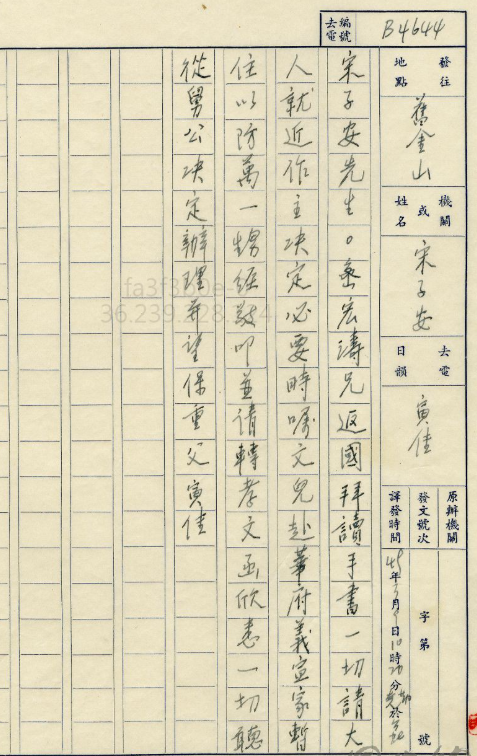 編號
去電
B4644
發往地點
舊金山
機關或姓名
宋子安
去電日韻
寅佳
原辦機關
發文號次 字第 號
譯發時間 45年3月9日10時 分 於
宋子安先生。密宏濤兄返國拜讀手書一切請大
人就近作主決定必要時囑文兒赴華府義宣家暫
住以防萬一甥經 叩並請轉孝文函欣悉一切聽
從舅公決定辦理并望保重父寅佳
fa3f3b0e
36.239.228.